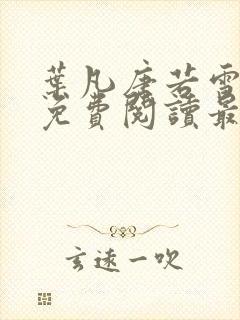 葉凡唐若雪
免費閱讀最
玄遠一吹